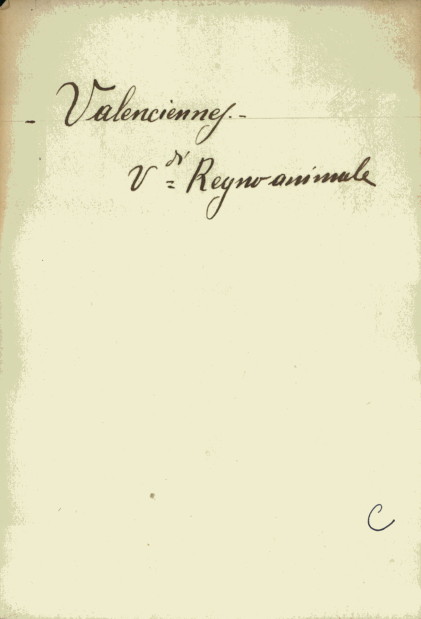 - Valenciennes.-
V=di Regno animale
C